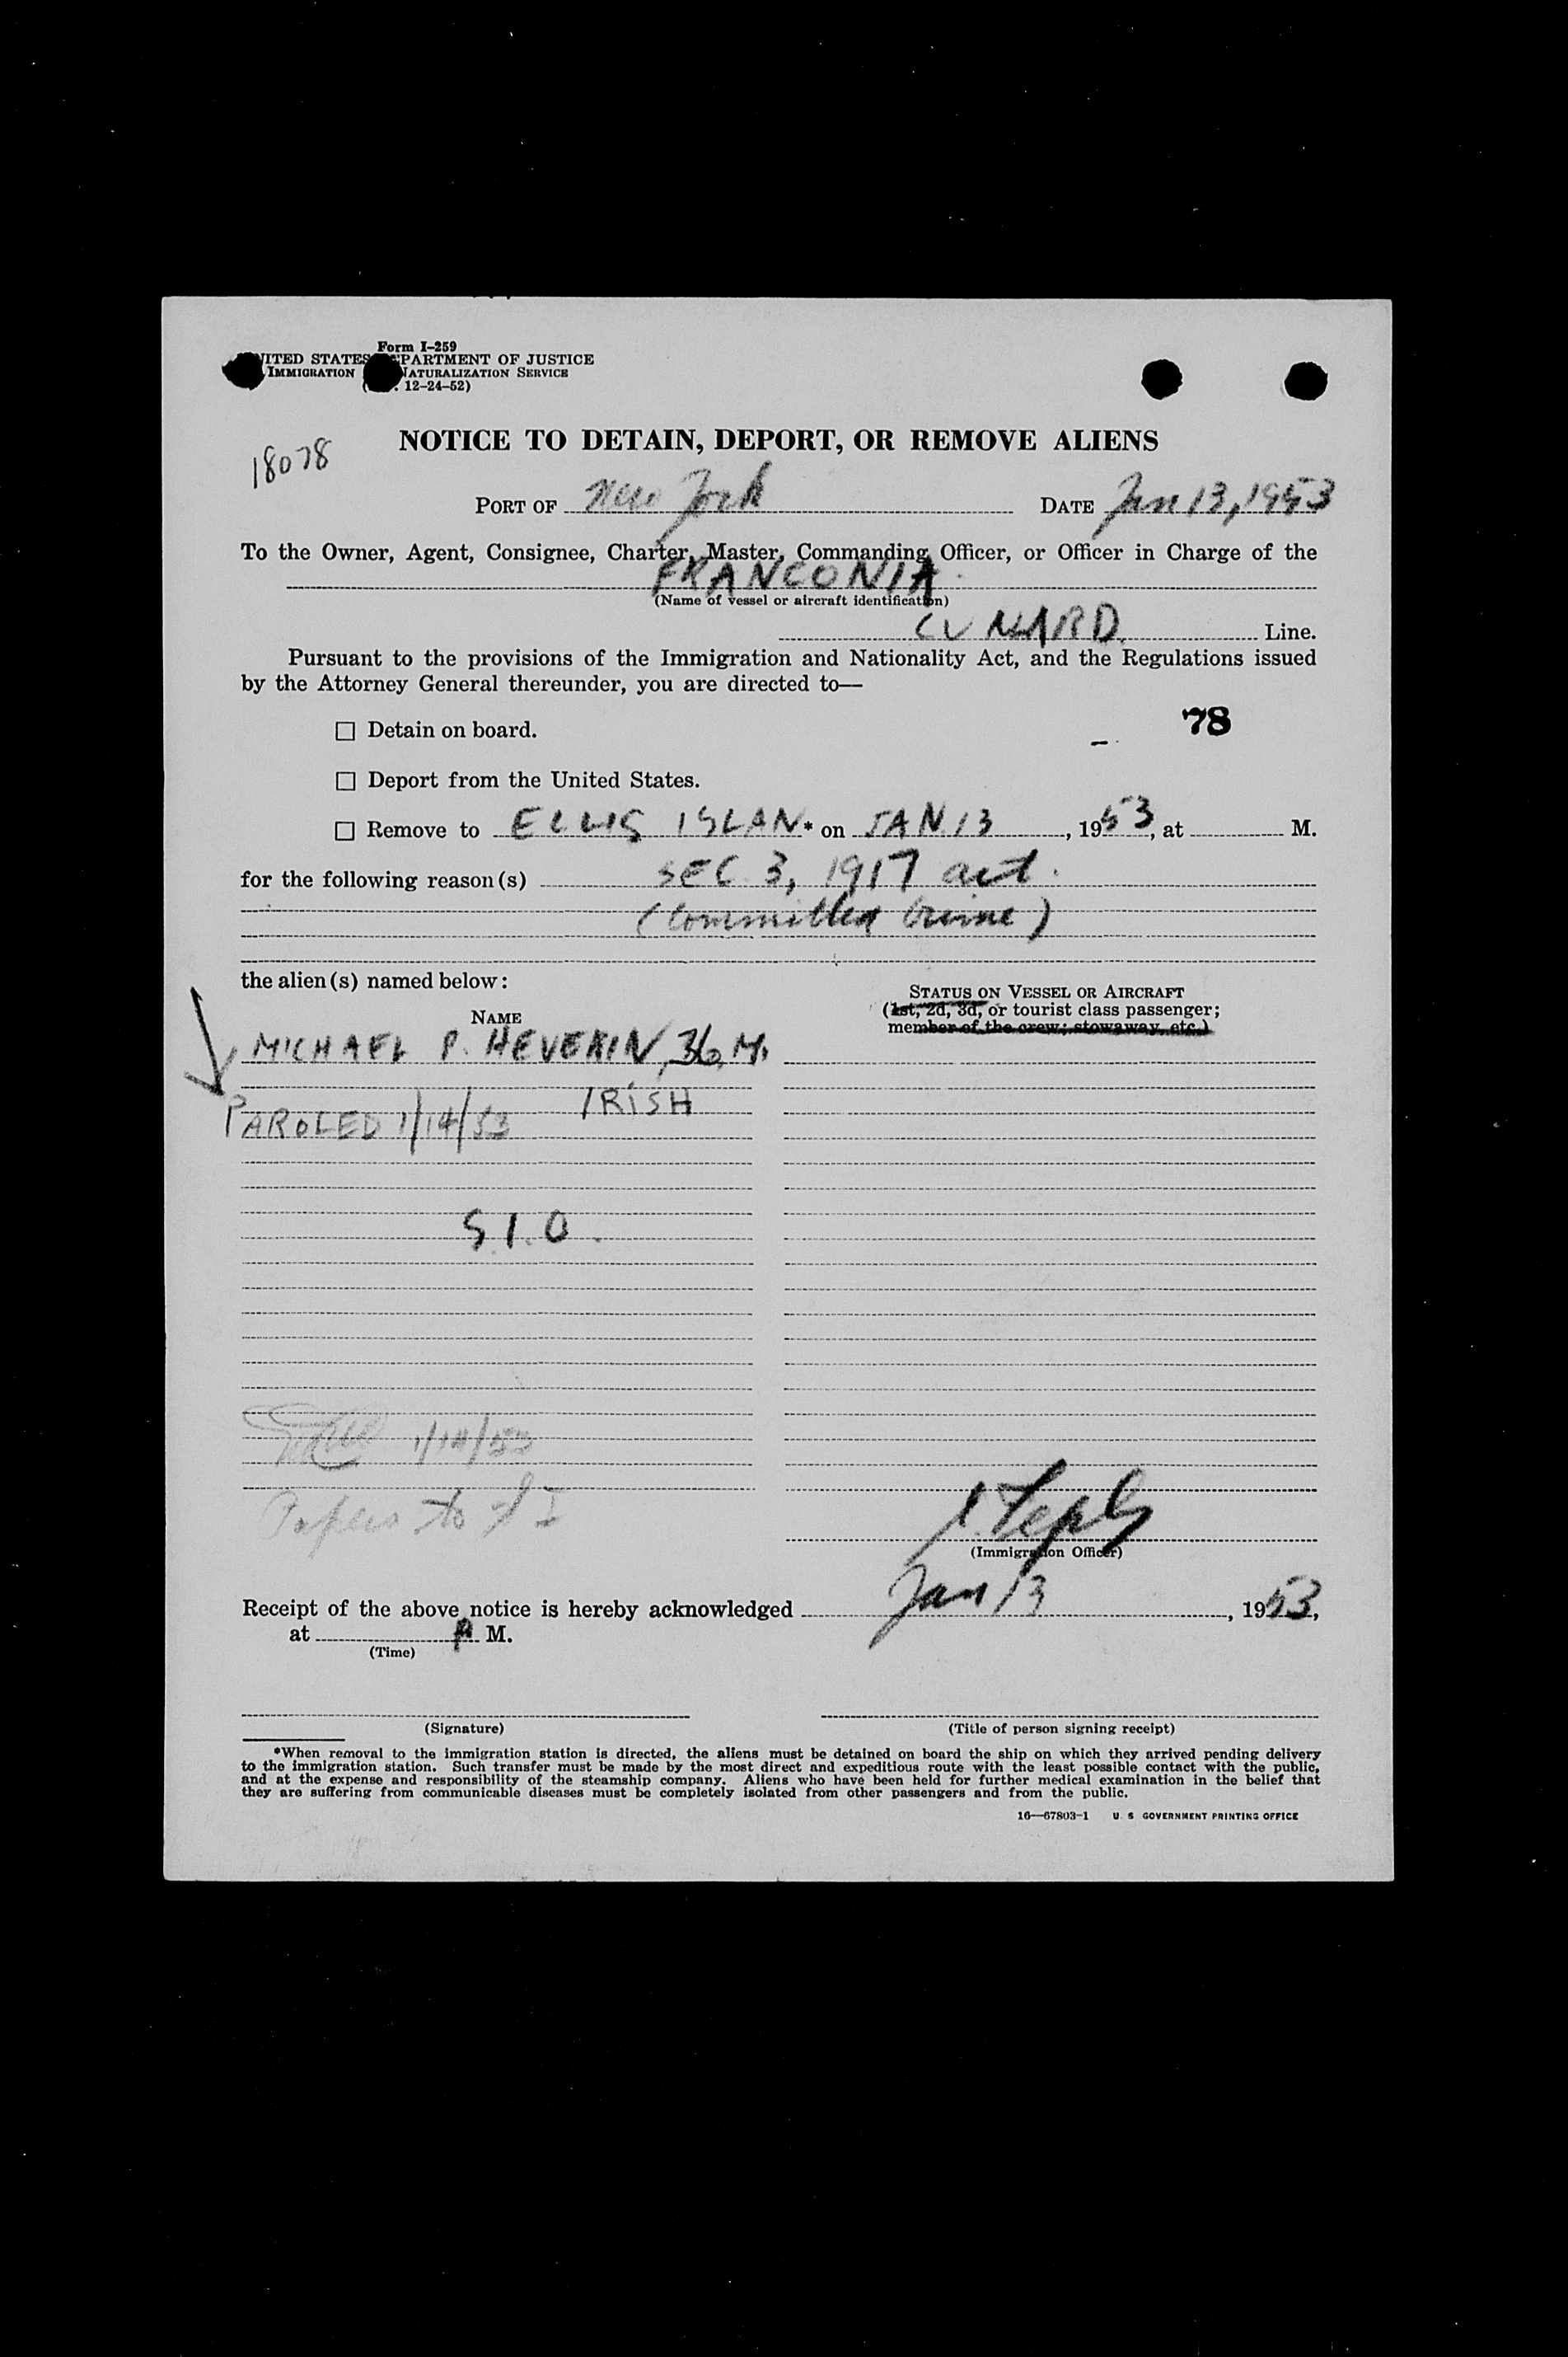 Form I-259
UNITED STATES DEPARTMENT OF JUSTICE
IMMIGRATION NATURALIZATION SERVICE
12-24-52)
18078
NOTICE TO DETAIN, DEPORT, OR REMOVE ALIENS
PORT OF New York DATE Jan 13, 1953
To the Owner, Agent, Consignee, Charter, Master, Commanding Officer, or Officer in Charge of the
FRANCONIA
(Name of vessel or aircraft identification)
CUNARD Line.
Pursuant to the provisions of the Immigration and Nationality Act, and the Regulations issued
by the Attorney General thereunder, you are directed to—
☐ Detain on board.
78
☐ Deport from the United States.
☐ Remove to ELLIS ISLAN * on JAN 13, 1953, at M.
for the following reason(s) SEC. 3, 1917 act.
(Committed Crime)
the alien(s) named below:
STATUS ON VESSEL OR AIRCRAFT
(1st, 2d, 3d, or tourist class passenger;
member of the crew; stowaway, etc.)
NAME
MICHAEL P. HEVEKIN, 36, M.
IRISH
PAROLED 1/14/53
S.I.O.
1/14/53
Papers to SI
(Immigration Officer)
Receipt of the above notice is hereby acknowledged Jan 13, 1953,
at P M.
(Time)
(Signature) (Title of person signing receipt)
*When removal to the immigration station is directed, the aliens must be detained on board the ship on which they arrived pending delivery
to the immigration station. Such transfer must be made by the most direct and expeditious route with the least possible contact with the public,
and at the expense and responsibility of the steamship company. Aliens who have been held for further medical examination in the belief that
they are suffering from communicable diseases must be completely isolated from other passengers and from the public.
16—67803-1 U S GOVERNMENT PRINTING OFFICE